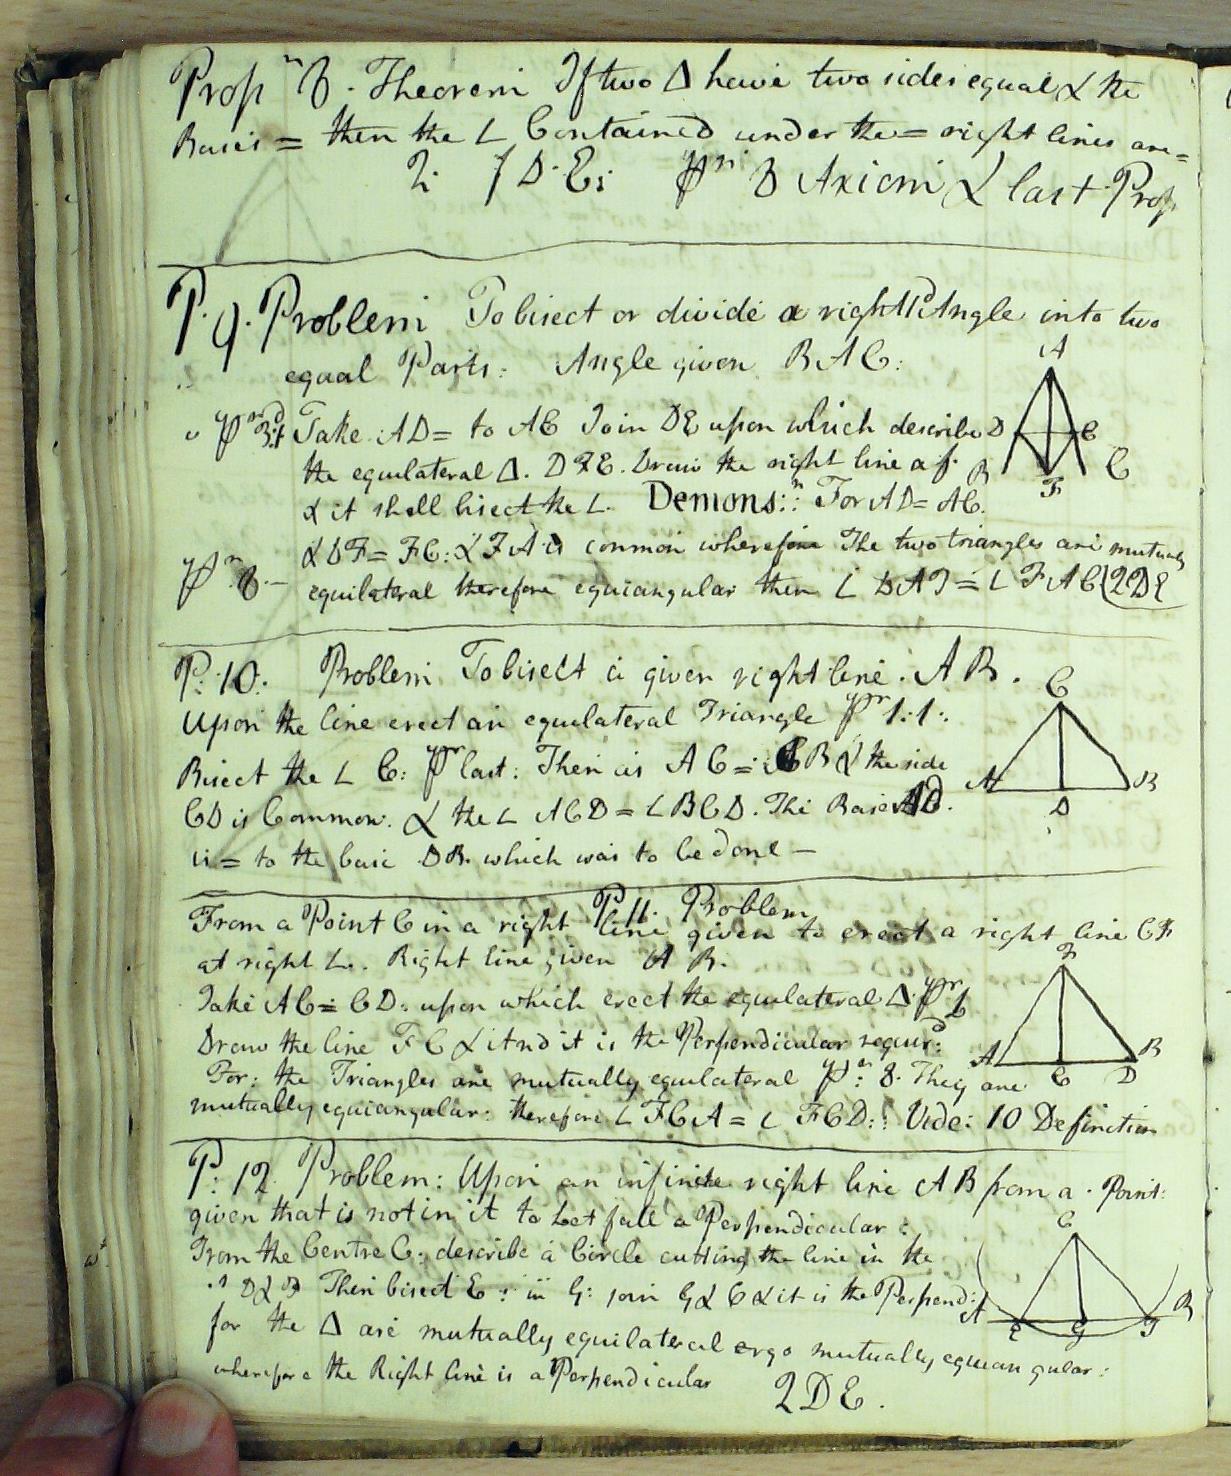 Propn 8. Theorem If two Δ have two sides equal & the
Bases = then the ∠ Contained under the = right lines are =
Q. D. E: Pn 8 Axiom & last Prop
P. 9. Problem To bisect or divide a right Angle into two
equal Parts: Angle given BAC:
Take AD = to AE Join DE upon which describe
the equilateral Δ. DFE. Draw the right line af.
& it shall bisect the ∠. Demons:n: For AD = AE.
& DF = FE: & FA is common wherefore The two triangles are mutualy
Pn 8 — equilateral therefore equiangular then ∠ DAF = ∠ FAE QDE
A
D E
B C
F
P: 10: Problem To bisect a given right line. AB.
Upon the line erect an equilateral Triangle Pr 1:1:.
Bisect the ∠ C: Pr last: Then as AC = CB & the side
CD is Common. & the ∠ ACD = ∠ BCD. The Base AD.
is = to the base DB. which was to be done —
C
A B
D
P. 11. Problem
From a Point C in a right line given to erect a right line CF
at right ∠. Right line given AB.
Take AC = CD: upon which erect the equilateral Δ. Pr 1
Draw the line FC & it is the Perpendicular requird:
For: the Triangles are mutually equilateral Pn: 8. They are
mutually equiangular: therefore ∠ FCA = ∠ FCD:: Vide: 10 Definition
F
A B
C D
P: 12 Problem: Upon an infinite right line AB from a Point:
given that is not in it to Let fall a Perpendicular:
From the Centre C: describe a Circle cutting the line in the
E & F Then bisect E: in G: join G & C & it is the Perpend:
for the Δ are mutually equilateral ergo mutually equiangular:
wherefore the Right line is a Perpendicular
QDE.
C
A B
E G F